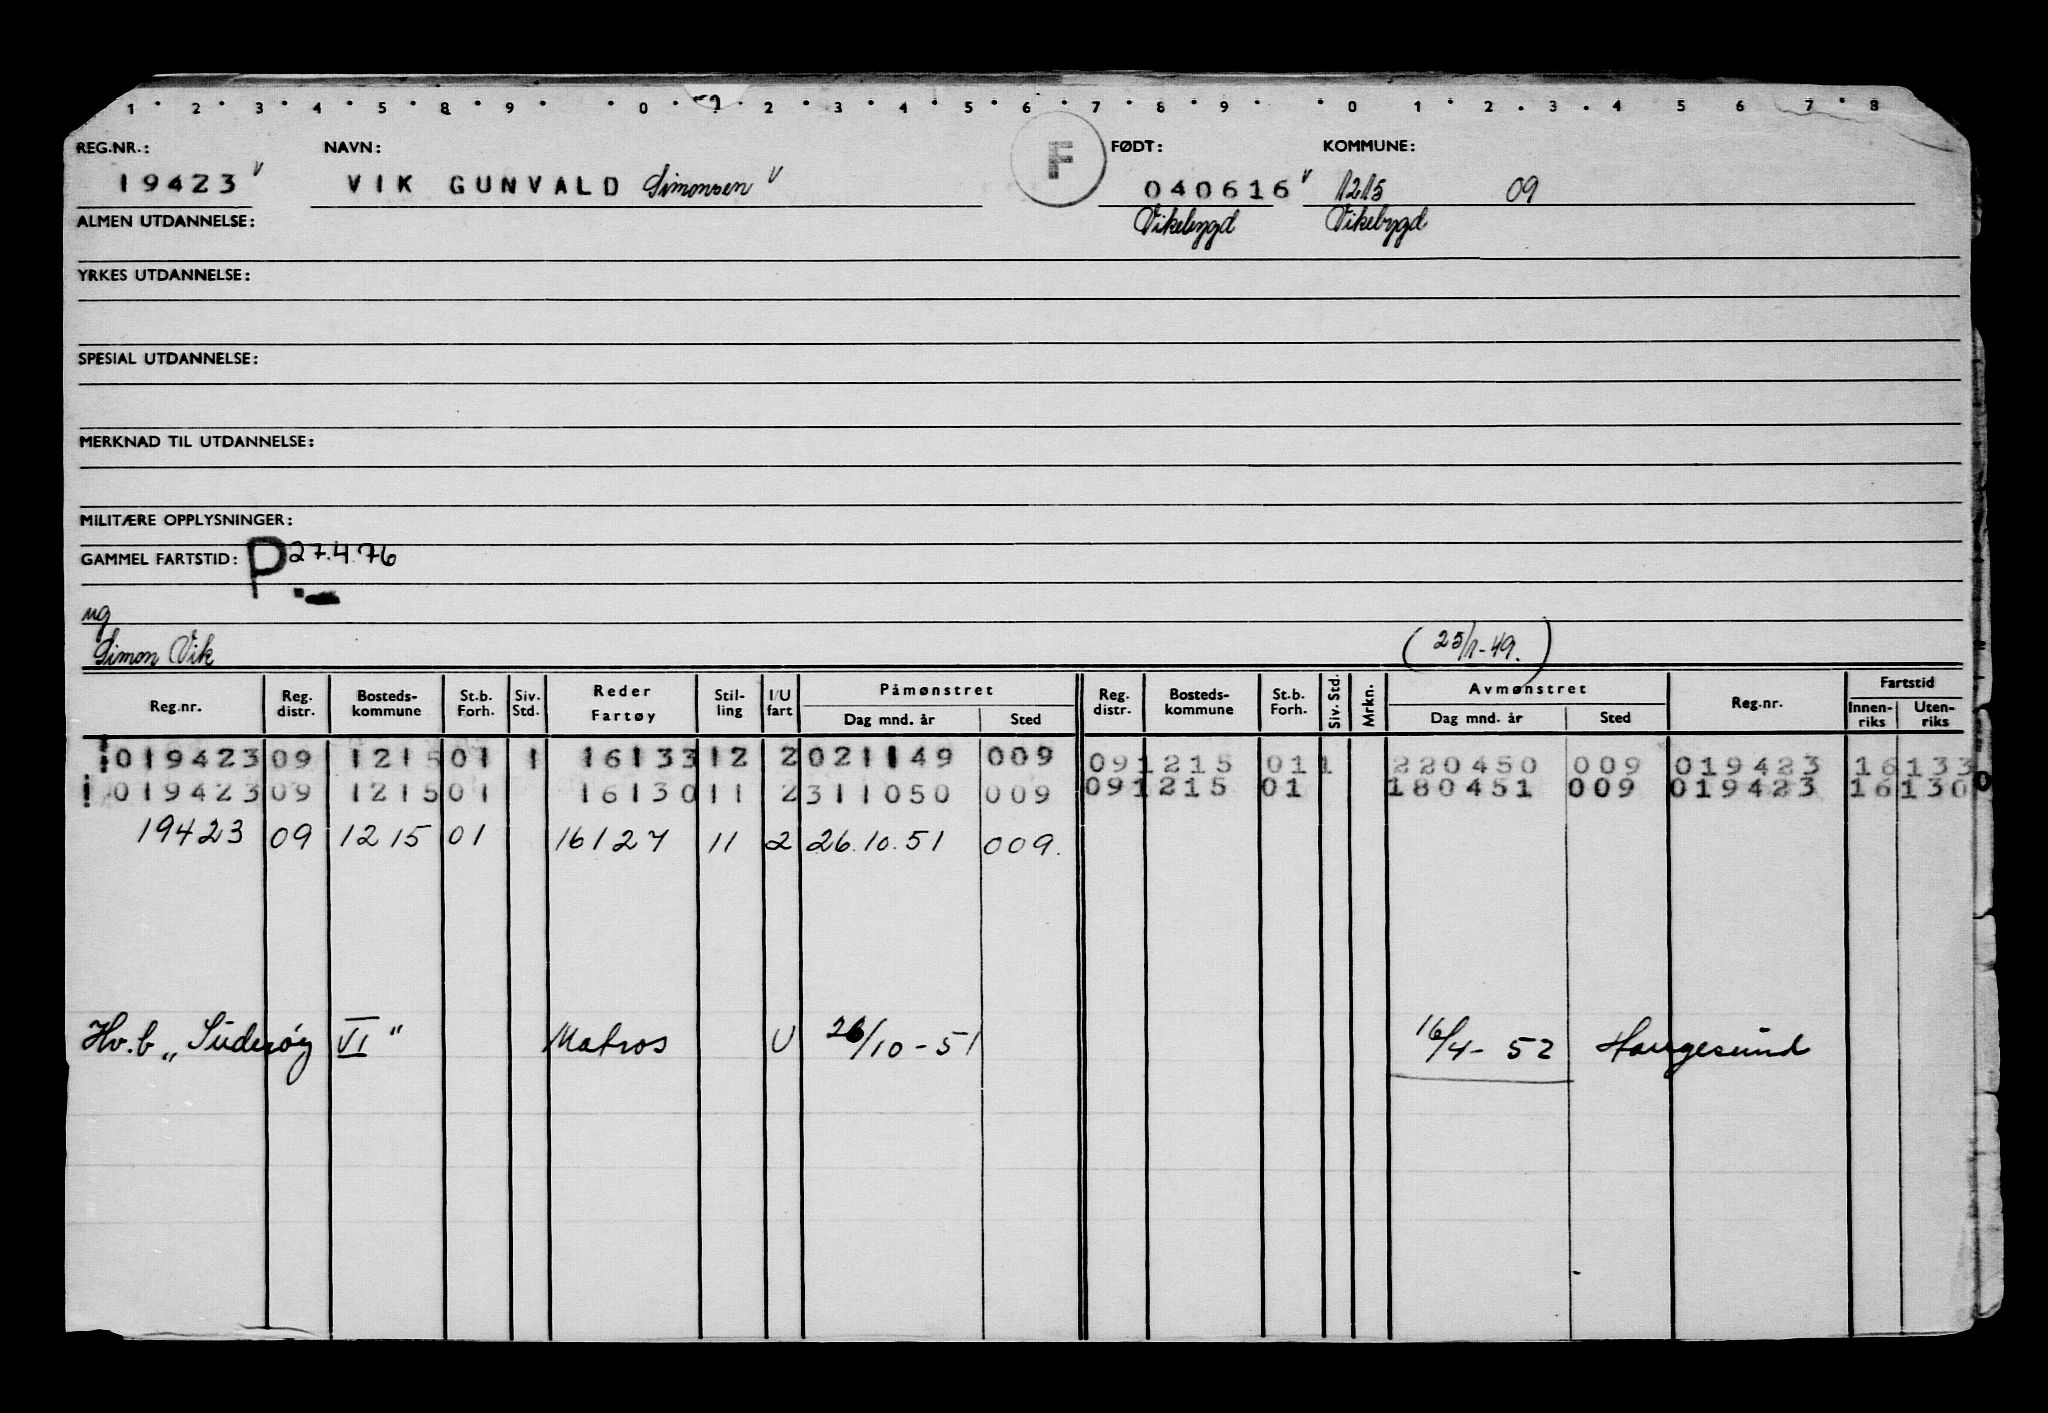 1 · 2 · 3 · 4 · 5 · 8 · 9 · · 0 · 1 · 2 · 3 · 4 · 5 · 6 · 7 · 8 · 9 · · 0 · 1 · 2 · 3 · 4 5 6 7 · 8
REG.NR.: NAVN: F FØDT: KOMMUNE:
19423 v VIK GUNVALD Simonsen v 040616 v 1215 09
ALMEN UTDANNELSE: Vikebygd Vikebygd
YRKES UTDANNELSE:
SPESIAL UTDANNELSE:
MERKNAD TIL UTDANNELSE:
MILITÆRE OPPLYSNINGER:
GAMMEL FARTSTID: P 27.4.76
ug
Simon Vik (25/1-49.)
Reg.nr. Reg. distr. Bosteds-kommune St.b. Forh. Siv. Std. Reder Fartøy Stil-ling I/U fart Påmønstret Dag mnd. år Sted Reg. distr. Bosteds-kommune St.b. Forh. Siv. Std. Mrkn. Avmønstret Dag mnd. år Sted Reg.nr. Fartstid Innen-riks Uten-riks
019423 09 1215 01 1 16133 12 2 021149 009 09 1215 01 1 220450 009 019423 16133
019423 09 1215 01 16130 11 2 311050 009 09 1215 01 180451 009 019423 16130
19423 09 1215 01 16127 11 2 26.10.51 009.
Hv.b „Suderøy VI" Matros U 26/10-51 16/4-52 Haugesund